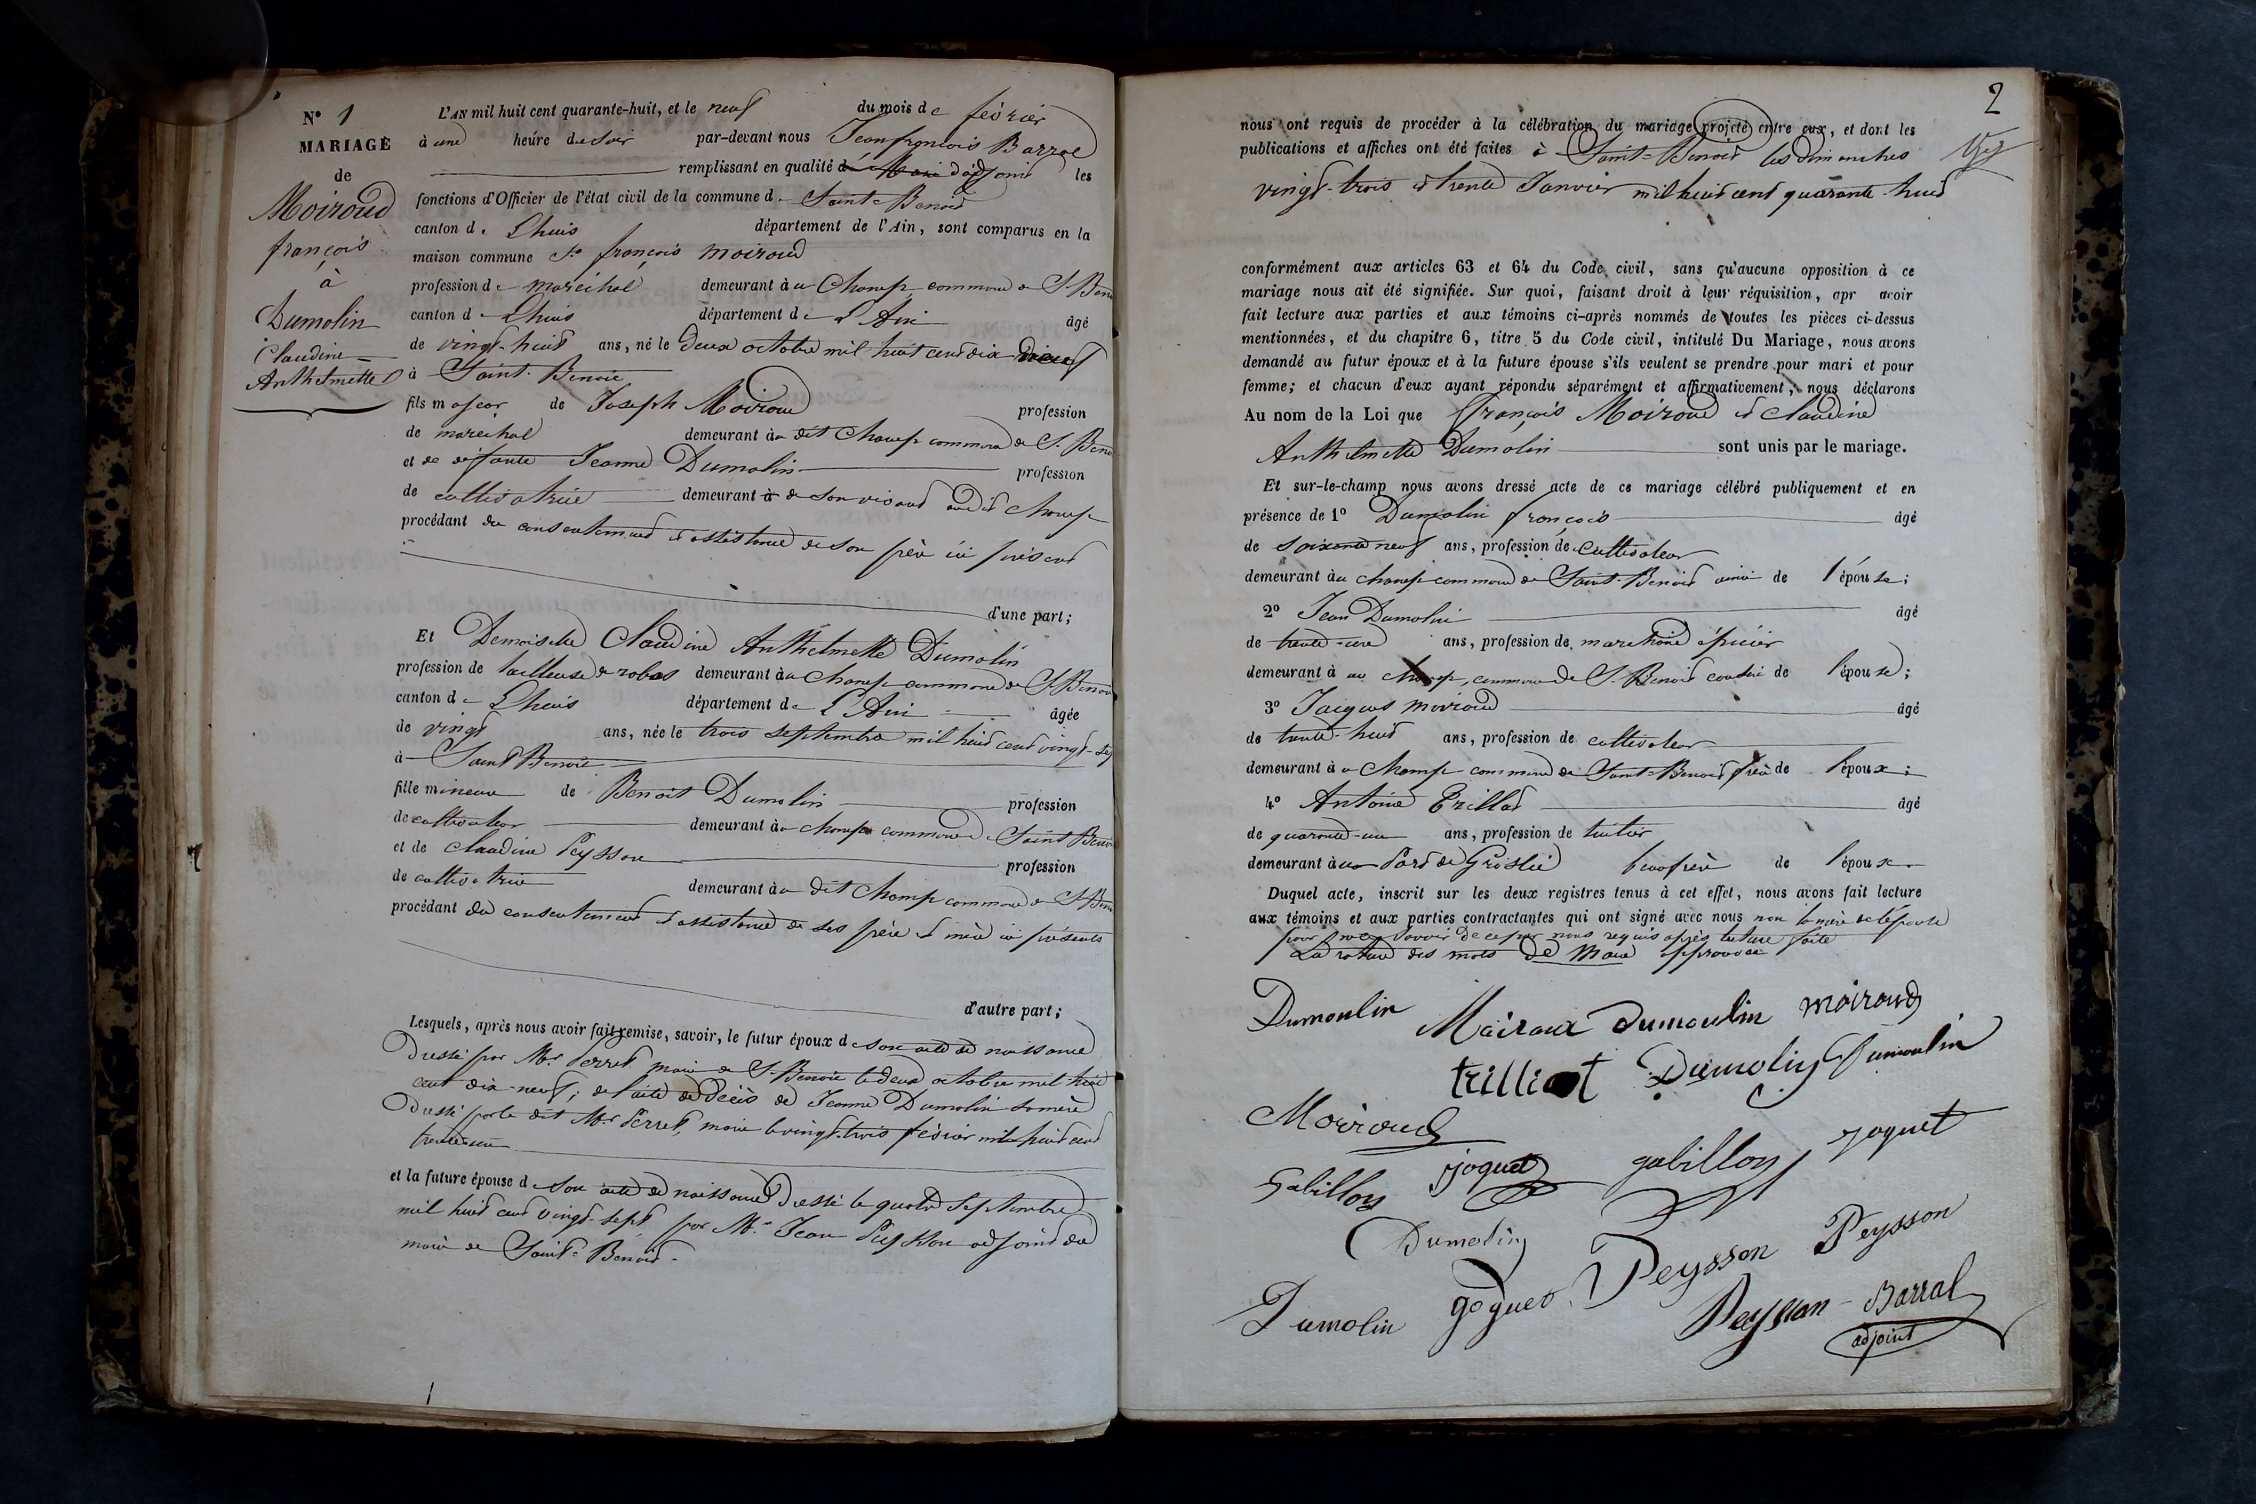 N° 1
MARIAGE
de
Moiroud
françois
à
Dumolin
Claudine
Anthelmette
L'AN mil huit cent quarante-huit, et le neuf du mois de février
à une heure du soir par-devant nous Jean françois Barral
remplissant en qualité de Maire d'adjoint les
fonctions d'Officier de l'état civil de la commune de Saint-Benoit
canton de Lhuis département de l'Ain, sont comparus en la
maison commune Sr françois moiroud
profession de maréchal demeurant à u Champ commune de St Benoit
canton de Lhuis département de L'Ain âgé
de vingt-huit ans, né le deux octobre mil huit cent dix neuf
à Saint-Benoit
fils majeur de Joseph Moiroud profession
de maréchal demeurant à u dit Champ commune de St Benoit
et de défunte Jeanne Dumolin profession
de cultivatrice demeurant à de son vivant audit Champ
procédant du consentement et assistance de son père ici présent
d'une part;
Et Demoiselle Claudine Anthelmette Dumolin
profession de tailleuse de robes demeurant à u Champ commune de St Benoit
canton de Lhuis département de L'Ain âgée
de vingt ans, née le trois septembre mil huit cent vingt-sept
à Saint Benoit
fille mineure de Benoit Dumolin profession
de cultivateur demeurant à u Champ commune de Saint Benoit
et de Claudine Peysson profession
de cultivatrice demeurant à u dit Champ commune de St Benoit
procédant du consentement et assistance de ses père et mère ici présents
d'autre part;
Lesquels, après nous avoir fait remise, savoir, le futur époux de son acte de naissance
Dressé par Mr Perret maire de St Benoit le deux octobre mil huit
cent dix-neuf; de l'acte de Décès de Jeanne Dumolin sa mère
Dressé par le dit Mr Perret, maire le vingt-trois février mil huit cent
trente-un
et la future épouse de son acte de naissance Dressé le quatre Septembre
mil huit cent vingt-sept par Mr Jean Peysson adjoint du
maire de Saint-Benoit.
2
nous ont requis de procéder à la célébration du mariage projeté entre eux, et dont les
publications et affiches ont été faites à Saint-Benoit les Dimanches
vingt-trois et trente Janvier mil huit cent quarante-huit
conformément aux articles 63 et 64 du Code civil, sans qu'aucune opposition à ce
mariage nous ait été signifiée. Sur quoi, faisant droit à leur réquisition, apr avoir
fait lecture aux parties et aux témoins ci-après nommés de toutes les pièces ci-dessus
mentionnées, et du chapitre 6, titre 5 du Code civil, intitulé Du Mariage, nous avons
demandé au futur époux et à la future épouse s'ils veulent se prendre pour mari et pour
femme; et chacun d'eux ayant répondu séparément et affirmativement, nous déclarons
Au nom de la Loi que François Moiroud et Claudine
Anthelmette Dumolin sont unis par le mariage.
Et sur-le-champ nous avons dressé acte de ce mariage célébré publiquement et en
présence de 1° Dumolin françois âgé
de soixante neuf ans, profession de cultivateur
demeurant à u champ commune de Saint-Benoit de l'épouse;
2° Jean Dumolin âgé
de trente-une ans, profession de marchand épicier
demeurant à au champ, commune de St Benoit cousin de l'épouse;
3° Jacques Moiroud âgé
de trente-huit ans, profession de cultivateur
demeurant à u Champ commune de Saint-Benoit frère de l'époux;
4° Antoine Trilliat âgé
de quarante-un ans, profession de
demeurant à au Port de Groslée beaufrère de l'époux
Duquel acte, inscrit sur les deux registres tenus à cet effet, nous avons fait lecture
aux témoins et aux parties contractantes qui ont signé avec nous non la mère de l'épouse
pour ne savoir de ce par nous requis après lecture faite
La rature des mots de Maire approuvée
Dumoulin Moiroux Dumoulin moiroud
trilliat Dumolin Dumoulin
Moiroud
Gabillon joguet gabillon joguet
Dumolin Peysson Peysson
Dumolin goguet Peysson Barral
adjoint
1